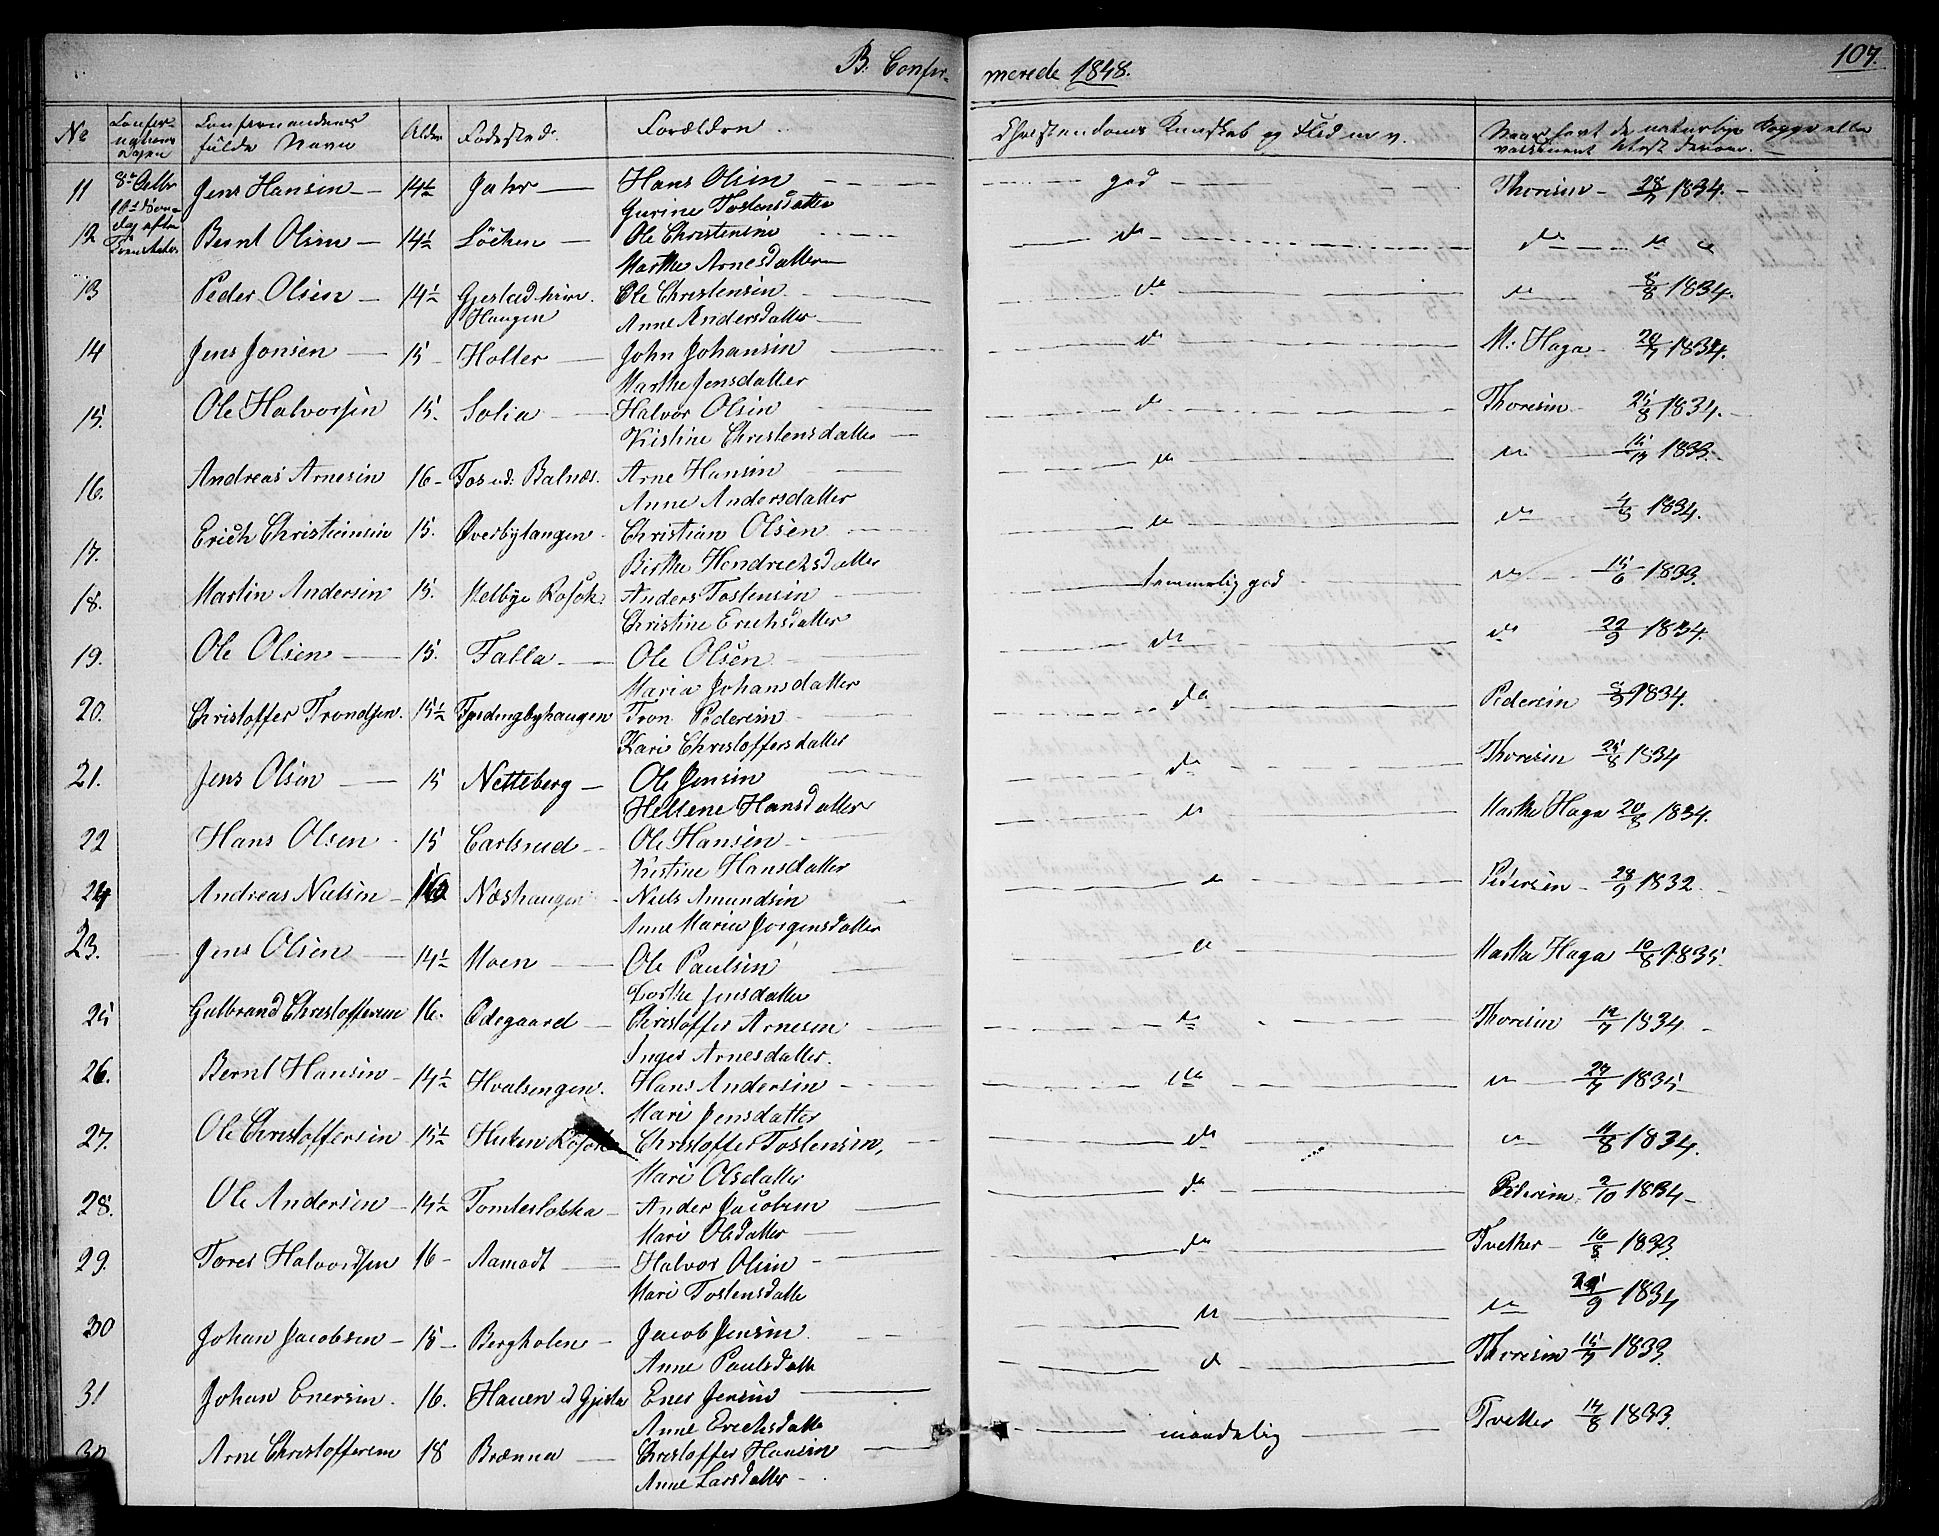 B. Confir- merede 1848. 107.
No Confirmanderens fulde Navn Alder Fødested. Forældre Christendoms Kundskab og Flid m. v.
11 8de Octbr Jens Hansen 14½ Jahr Hans Olsen god Thoresen 28/7 1834.
Gurine Tostensdatter
12 Bernt Olsen 14½ Løcken Ole Christensen do do
Marthe Arnesdatter
13 Peder Olsen 14½ Ole Christensen do do 8/8 1834.
Haugen Anne Andersdatter
14 Jens Jonsen 15 Holter John Johansen do M: Haga 20/7 1834.
Marthe Jensdatter
15. Ole Halvorsen 15. Solia Halvor Olsen do Thoresen 25/8 1834.
Kistine Christensdatter
16. Andreas Arnesen 16 Fos ed: Balnæs. Arne Hansen do do 1833.
Anne Andersdatter
17. Erich Christiansen 15. Øverbytangen Christian Olsen do do 1834.
Birthe Hendrichsdatter
18. Martin Andersen 15. Melbye Anders Tostensen temmelig god do 15/6 1833.
Christine Erichsdatter
19. Ole Olsen 15. Falla Ole Olsen do do 22/9 1834.
Maria Johansdatter
20. Christoffer Trondsen. 15½ Tron Pedersen do Pedersen 1834.
Kari Christoffersdatter
21. Jens Olsen 15 Netteberg Ole Jensen do Thoresen 25/8 1834
Hellene Hansdatter
22 Hans Olsen 15 Carlsrud Ole Hansen do Marthe Haga 20/8 1834.
Kistine Hansdatter
24 Andreas Nielsen 16 Næshaugen Niels Amundsen do Pedersen 28/9 1832.
Anne Maria Jørgensdatter
23. Jens Olsen 14½ Moen Ole Paulsen do Martha Haga 10/8 1835.
Dorthe Jensdatter
25 Gulbrand Christoffersen 16. Ødegaard Christoffer Arnesen do Thoresen 1834
Inger Arnesdatter.
26. Bernt Hansen 14½ Hvalsengen. Hans Andersen do do 27/7 1835
Mari Jensdatter
27. Ole Christoffersen 15½ Christoffer Tostensen, do do 11/8 1834.
Mari Olsdatter
28. Ole Andersen 14½ Tomteslokka Ander Jacobsen do Pedersen 2/10 1834
Mari Olsdatter
29. Tores Halvordsen 16 Aamodt Halvor Olsen do Tvether 1833.
Mari Tostensdatte
30 Johan Jacobsen 15 Bergholen Jacob Jensen do do 1834
Anne Paulsdatte
31 Johan Enersen. 16. Hauen Ener Jensen do Thoresen 15/7 1833.
Anne Erichsdatte
Arne Christoffersen 18 Brænna Christoffer Hansen maadelig Tvetter 14/8 1833.
Anne Larsdatter